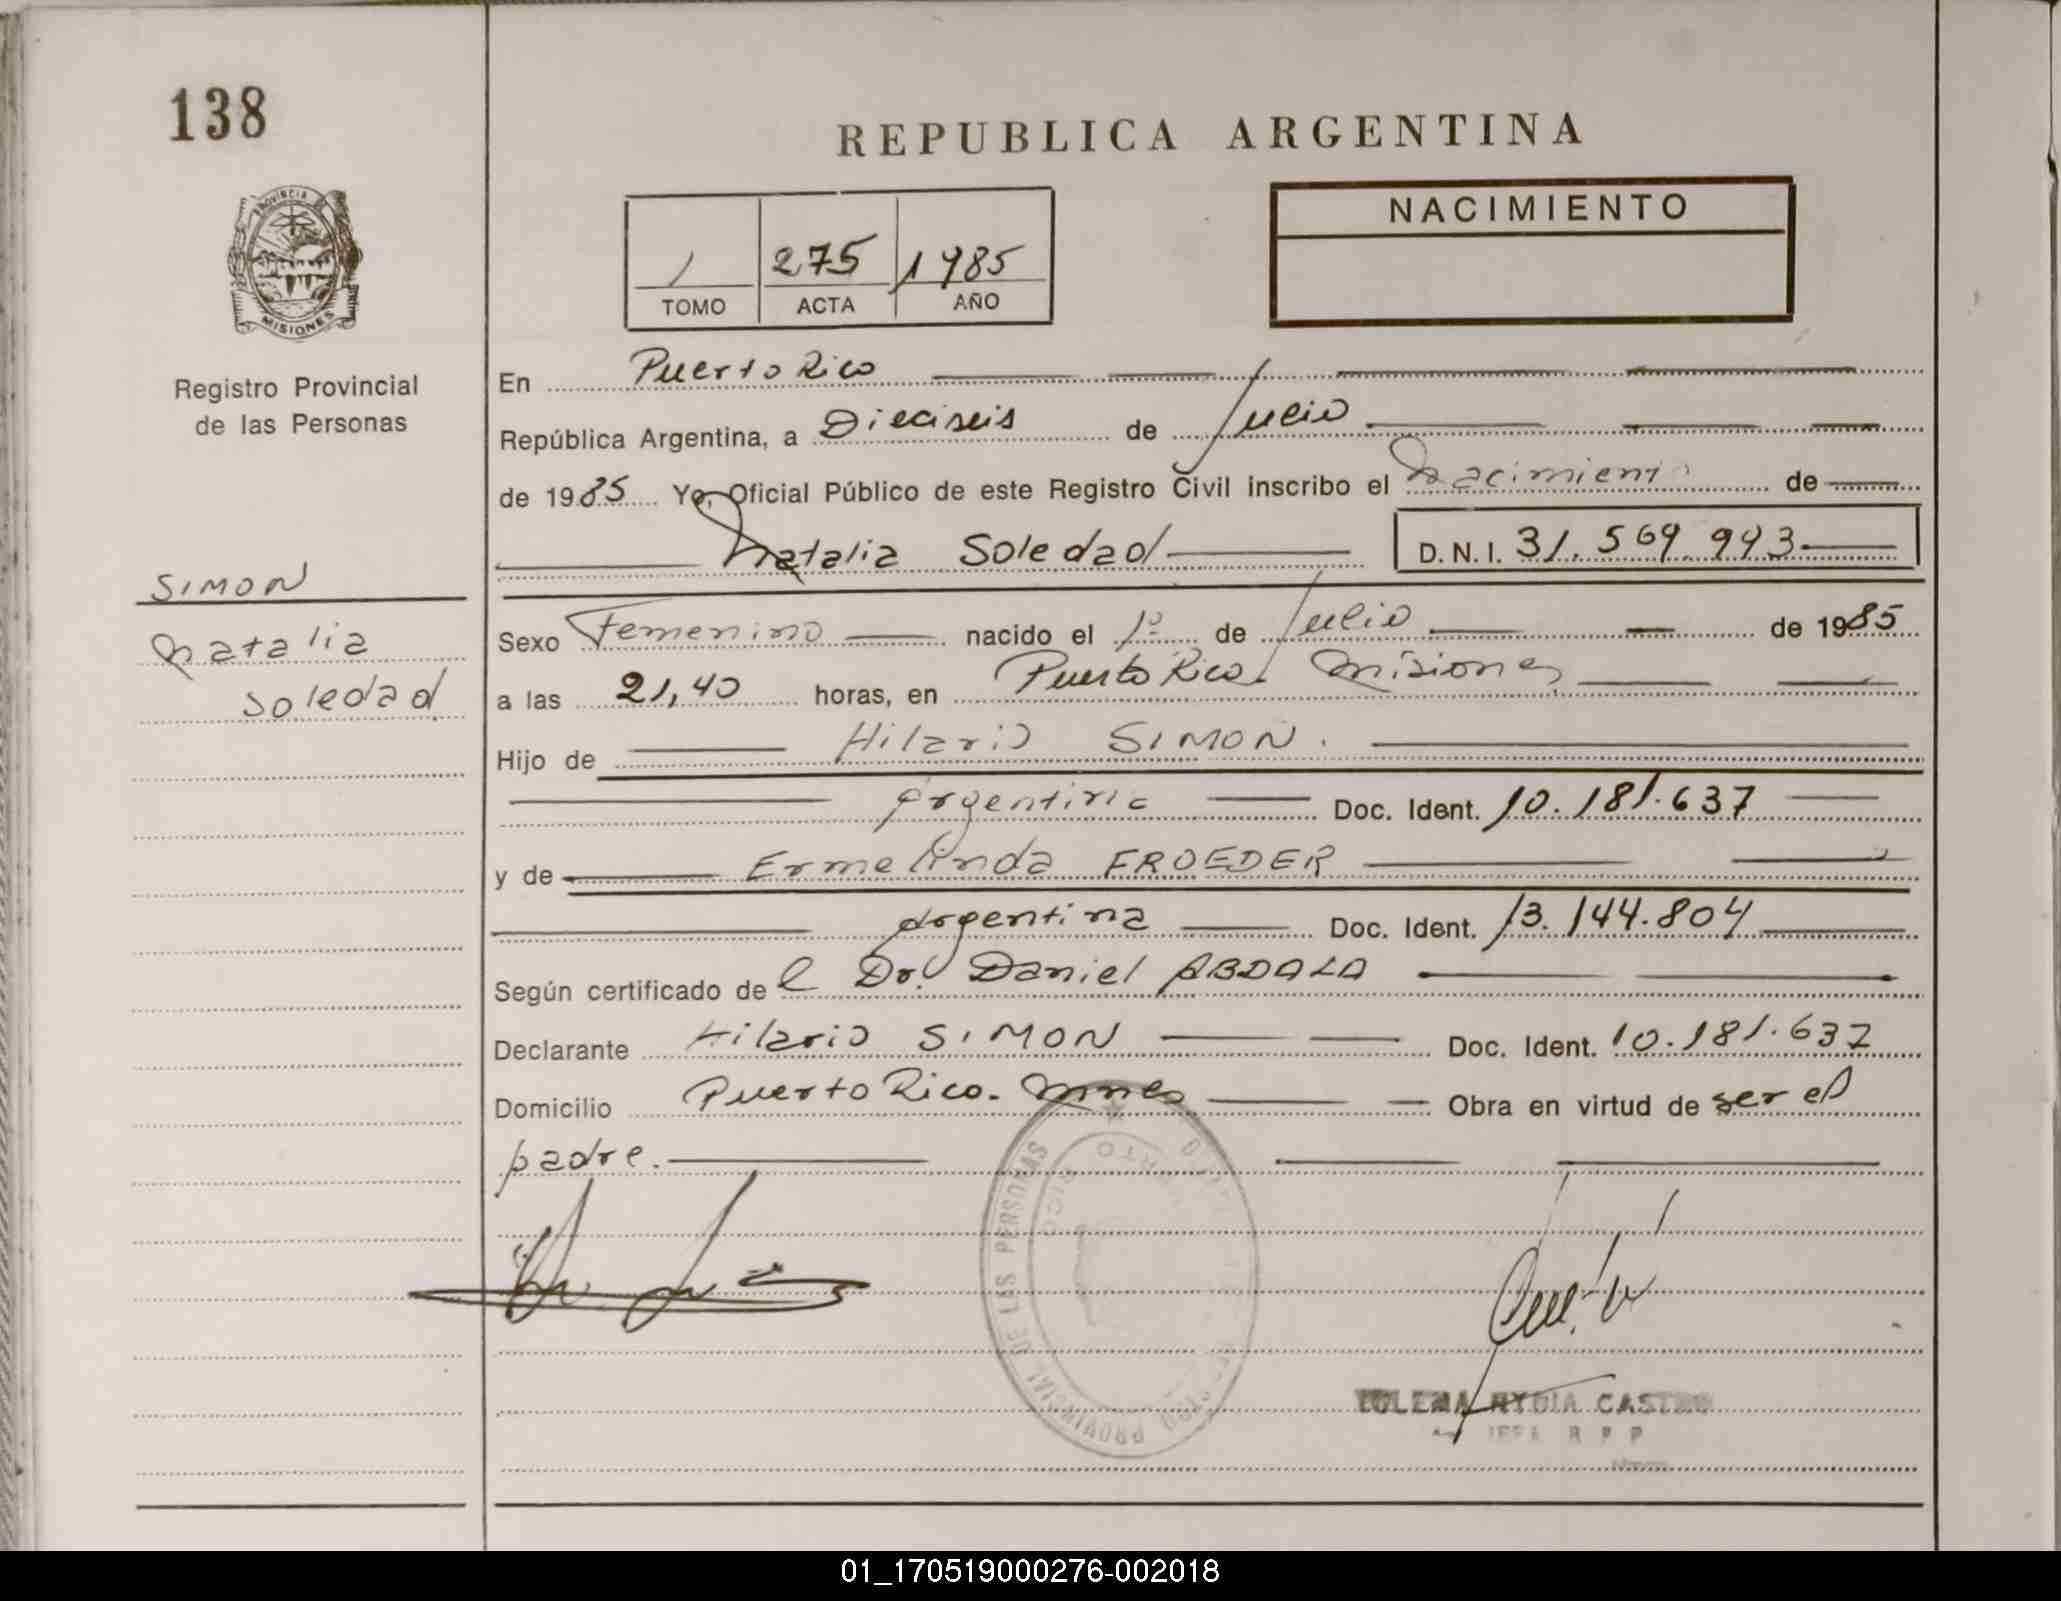 138
REPUBLICA ARGENTINA
PROVINCIA DE
MISIONES
Registro Provincial
de las Personas
1 275 1985
TOMO ACTA AÑO
NACIMIENTO
En Puerto Rico
República Argentina, a Dieciseis de Julio
de 1985 Yo, Oficial Público de este Registro Civil inscribo el Nacimiento de
Natalia Soledad D.N.I. 31.569.993
SIMON
Natalia
Soledad
Sexo Femenino nacido el 1º de Julio de 1985
a las 21,40 horas, en Puerto Rico. Misiones
Hijo de Hilario SIMON.
argentino Doc. Ident. 10.181.637
y de Ermelinda FROEDER
argentina Doc. Ident. 13.144.804
Según certificado de l Dr. Daniel ABDALA
Declarante Hilario SIMON Doc. Ident. 10.181.637
Domicilio Puerto Rico. Mnes Obra en virtud de ser el
padre.
PROVINCIAL DE LAS PERSONAS
RICO
CASTRO
01_170519000276-002018